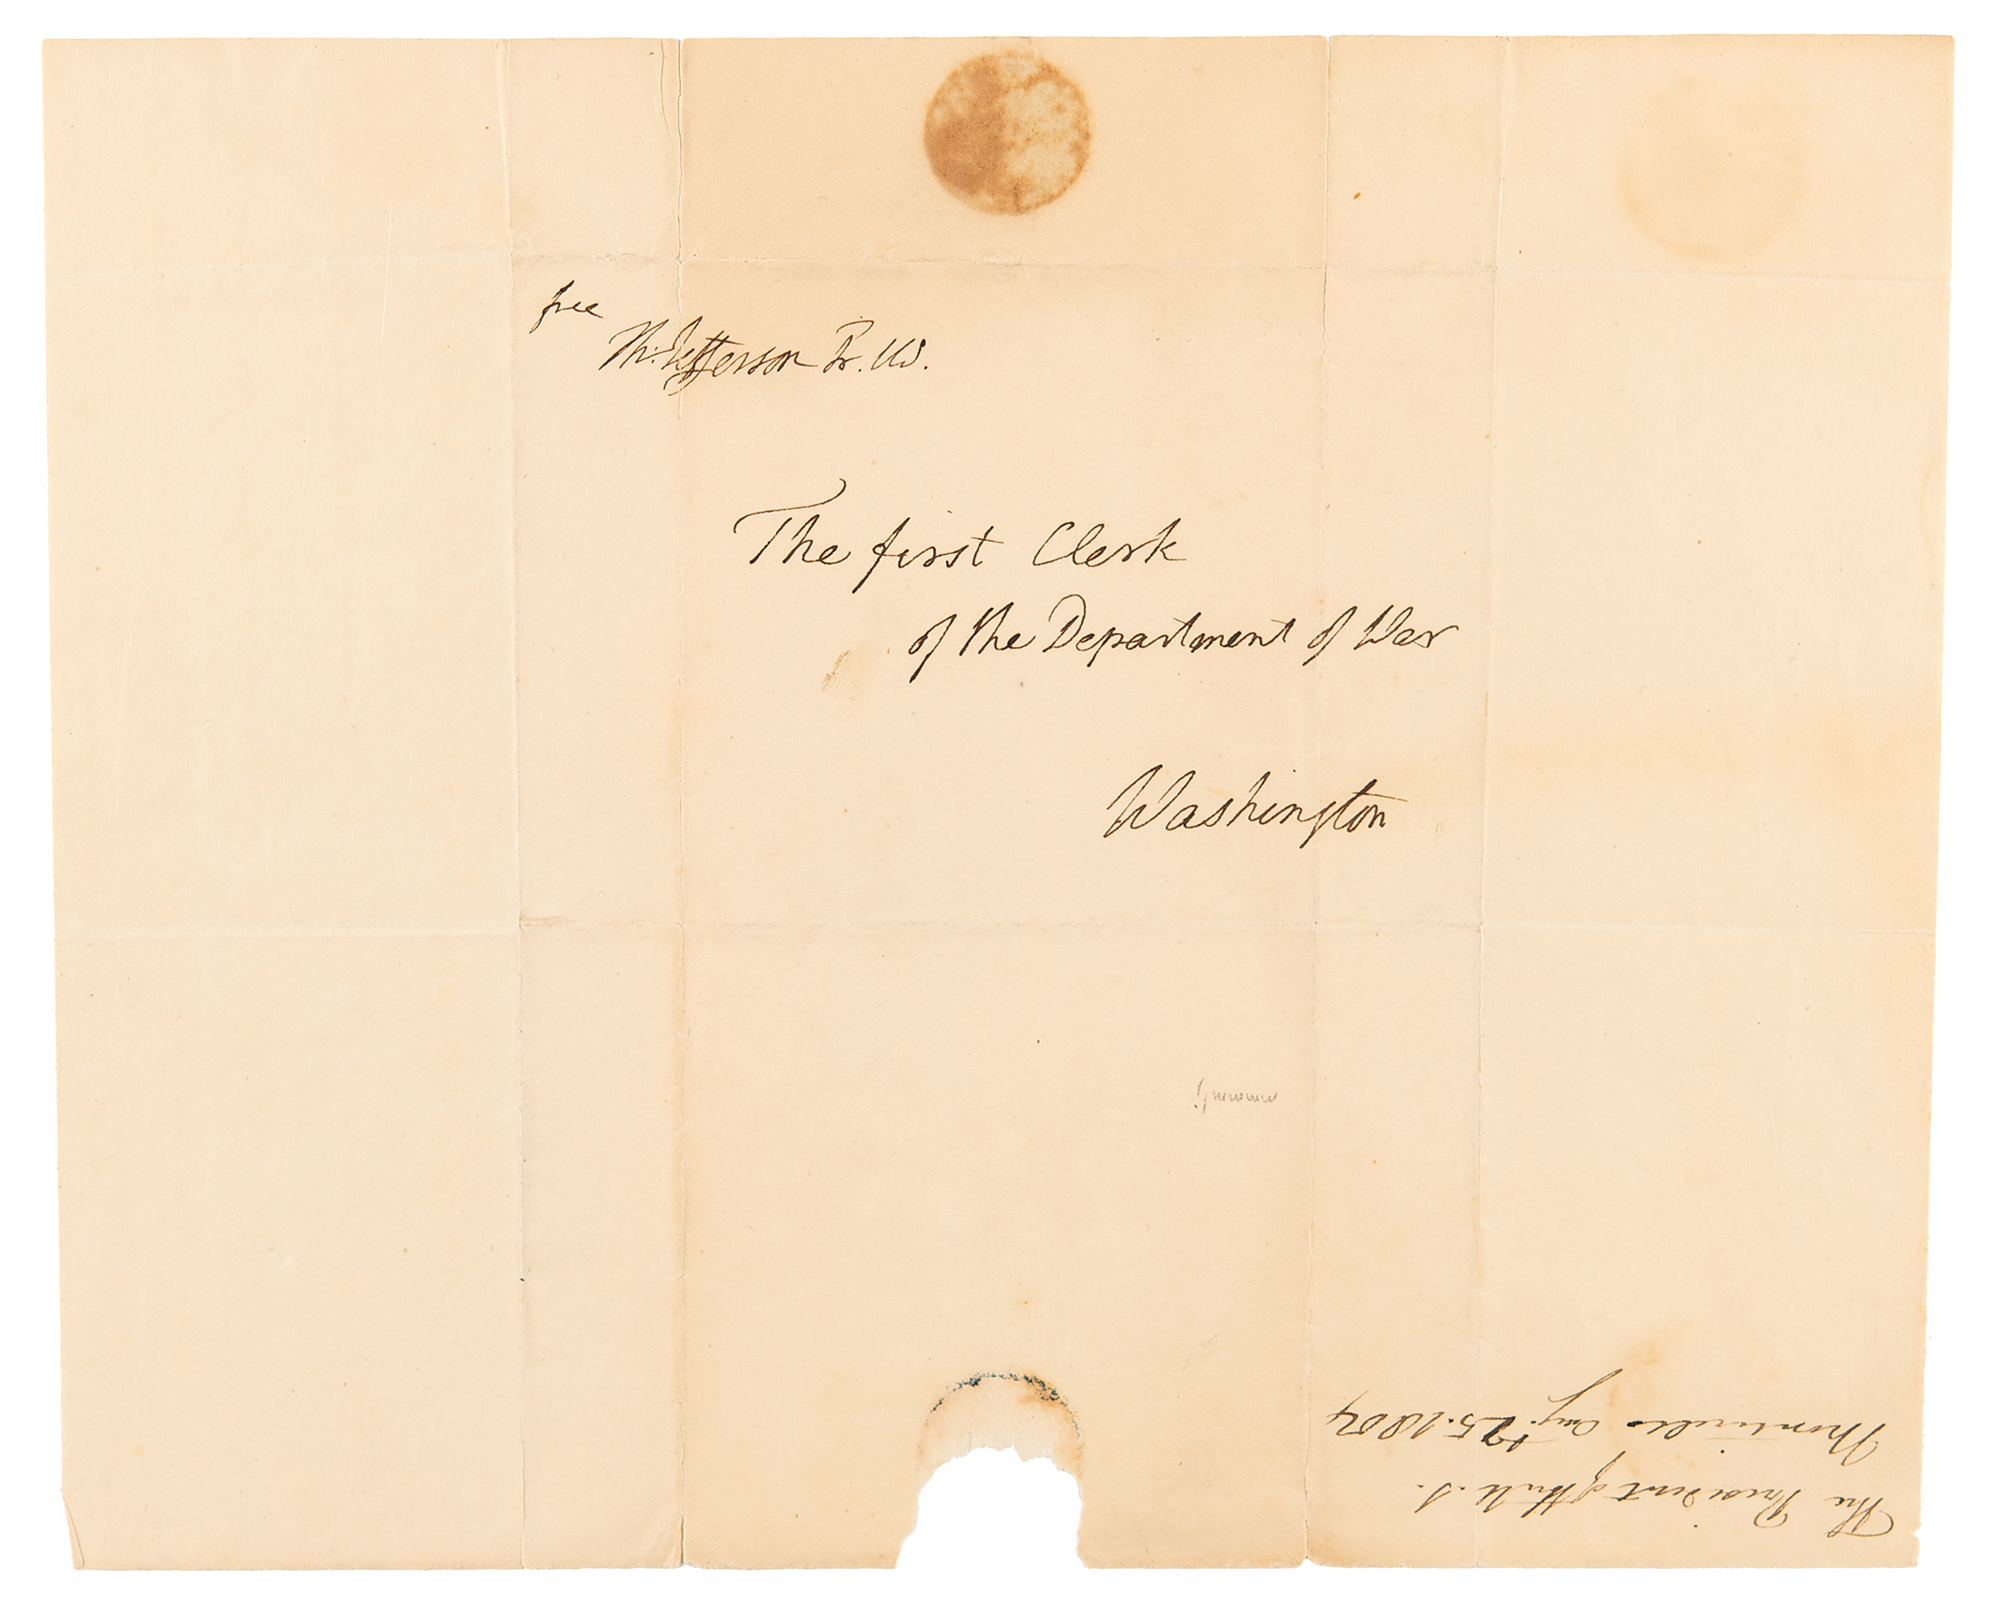 free
Th: Jefferson Pr. US.
The first Clerk
of the Department of War
Washington
The President of the U. S.
Monticello Aug. 25. 1804